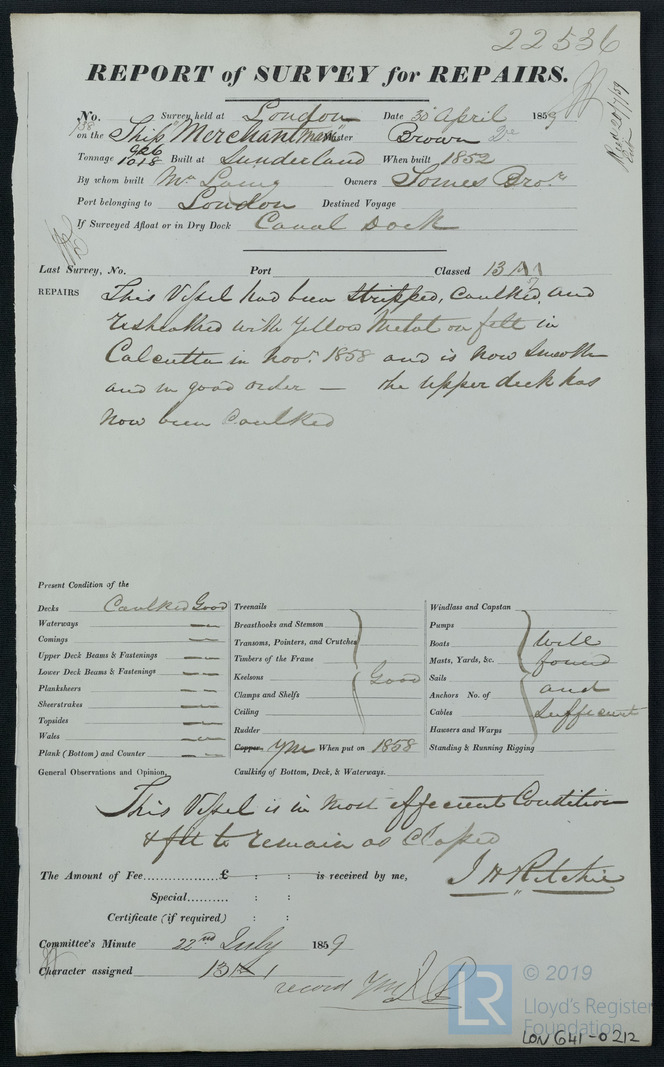 22536
REPORT of SURVEY for REPAIRS.
No. Survey held at London Date 30 April 1859
on the Ship "Merchantman" Master Brown
Tonnage 926 1018 Built at Sunderland When built 1852
By whom built Mr Laing Owners Somes Bros.
Port belonging to London Destined Voyage
If Surveyed Afloat or in Dry Dock Canal Dock
Last Survey, No. Port Classed 13 A1
REPAIRS This Vessel had been stripped, Caulked, and
resheathed with Yellow Metal on felt in
Calcutta in Novr. 1858 and is now Smooth
and in good order — the upper deck has
now been Caulked
Present Condition of the
Decks Caulked Good
Waterways
Comings
Upper Deck Beams & Fastenings
Lower Deck Beams & Fastenings
Planksheers
Sheerstrakes
Topsides
Wales
Plank (Bottom) and Counter
Treenails
Breasthooks and Stemson
Transoms, Pointers, and Crutches
Timbers of the Frame
Keelsons Good
Clamps and Shelfs
Ceiling
Rudder
Copper YM When put on 1858
Caulking of Bottom, Deck, & Waterways.
Windlass and Capstan
Pumps
Boats Well
Masts, Yards, &c. found
Sails and
Anchors No. of
Cables Sufficient
Hawsers and Warps
Standing & Running Rigging
General Observations and Opinion,
This Vessel is in most efficient Condition
& fit to remain as Classed
The Amount of Fee............... £ : : is received by me,
Special......... : :
Certificate (if required) : :
J H Ritchie
Committee's Minute 22nd July 1859
Character assigned 13 A 1
record YM
LR © 2019
Lloyd's Register
Foundation
LON 641-0212